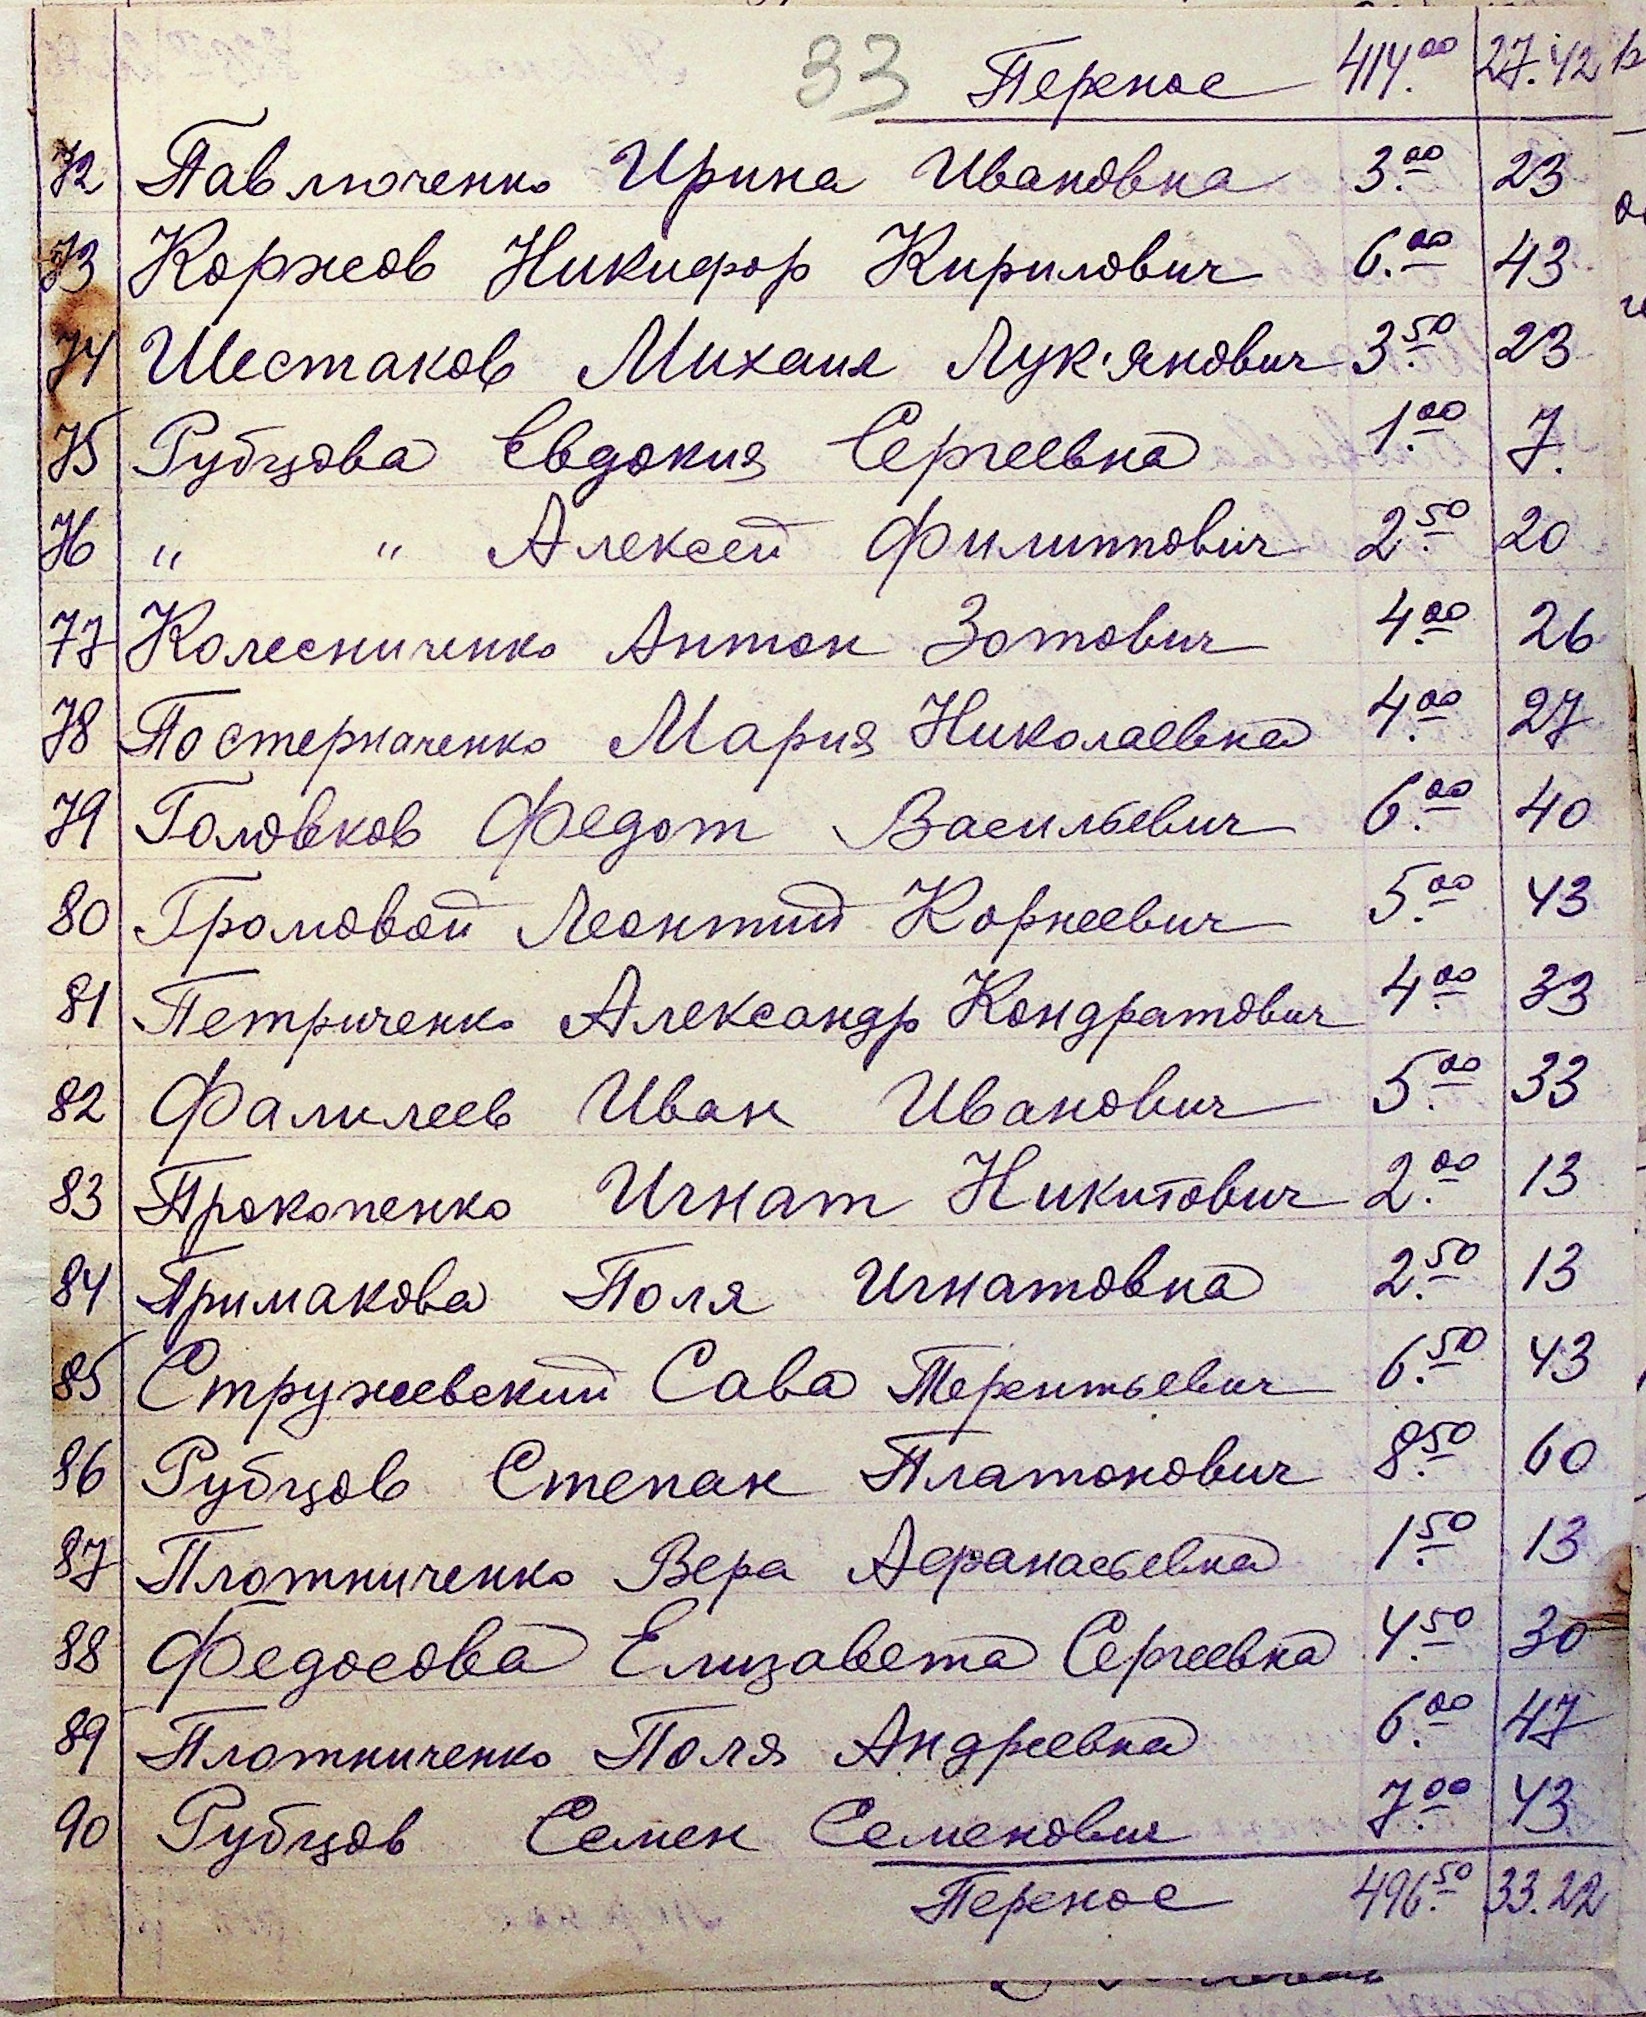 33 Перенос 414.00 27.42
72 Павлюченко Ирина Ивановна 3.00 23
73 Коржов Никифор Кирилович 6.00 43
74 Шестаков Михаил Лук'янович 3.50 23
75 Рубцова Евдокия Сергеевна 1.00 7.
76 " " Алексей Филиппович 2.50 20
77 Колесниченко Антон Зотович 4.00 26
78 Постерначенко Мария Николаевна 4.00 27
79 Головков Федот Васильевич 6.00 40
80 Громовой Леонтий Корнеевич 5.00 43
81 Петриченко Александр Кондратович 4.00 33
82 Фалилеев Иван Иванович 5.00 33
83 Прокопенко Игнат Никитович 2.00 13
84 Примакова Поля Игнатовна 2.50 13
85 Стружевский Сава Терентьевич 6.50 43
86 Рубцов Степан Платонович 8.50 60
87 Плотниченко Вера Афанасьевна 1.50 13
88 Федосова Елизавета Сергеевна 4.50 30
89 Плотниченко Поля Андреевна 6.00 47
90 Рубцов Семен Семенович 7.00 43
Перенос 496.50 33.22